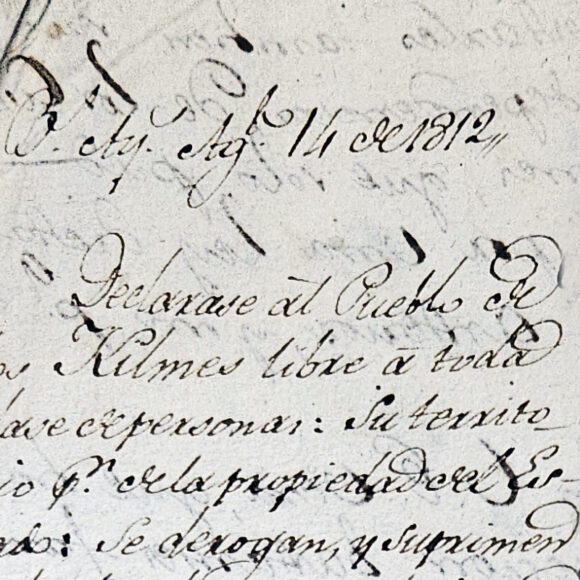 Bs. Ays. Agto. 14 de 1812,,
Declarase al Pueblo de
os Kilmes libre à toda
lase de personas: Su territo
io pr. de la propiedad del Es-
ado: Se derogan, y suprimen